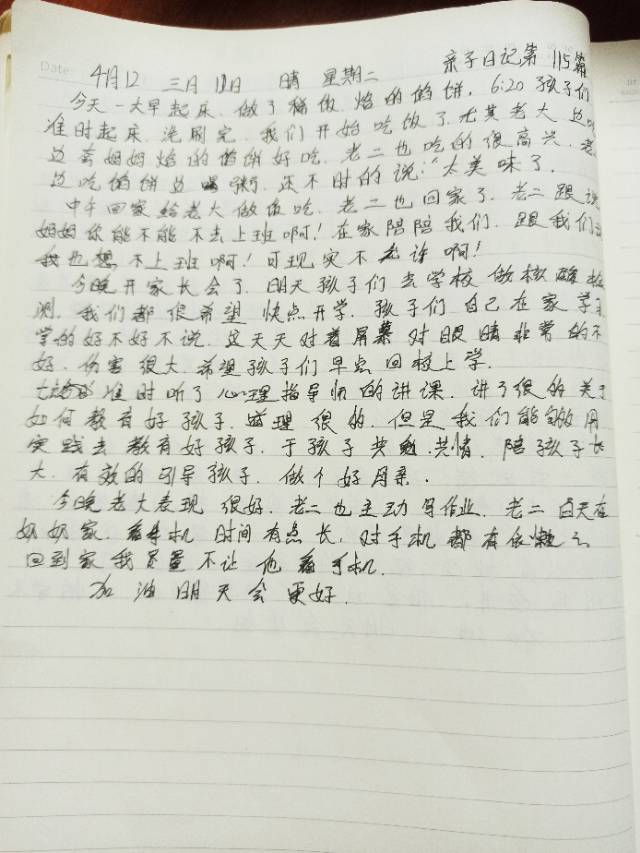 Date:
亲子日记第115篇
4月12 三月12日 晴 星期二
今天一大早起床.做了稀饭.焰的馅饼.6:20孩子们
准时起床.洗刷完.我们开始吃饭了.尤其老大边吃
边夸妈妈焰的馅饼好吃.老二也吃的很高兴.老
边吃馅饼边喝粥.还不时的说:"太美味了.
中午回家给老大做饭吃.老二也回家了.老二跟说
妈妈你能不能不去上班啊!在家陪陪我们.跟我们
我也想不上班啊!可现实不允许啊!
今晚开家长会了.明天孩子们去学校做核酸检
测.我们都很希望快点开学.孩子们自己在家学习
学的好不好不说.这天天对着屏幕对眼睛非常的不
好.伤害很大.希望孩子们早点回校上学.
准时听了心理指导师的讲课.讲了很的关于
如何教育好孩子.道理很的.但是我们能够用
实践去教育好孩子.于孩子共勉.共情.陪孩子长
大.有效的引导孩子.做个好母亲.
今晚老大表现很好.老二也主动写作业.老二白天在
奶奶家.看手机时间有点长,对手机都有依懒
回到家我尽量不让他看手机.
加油明天会更好.